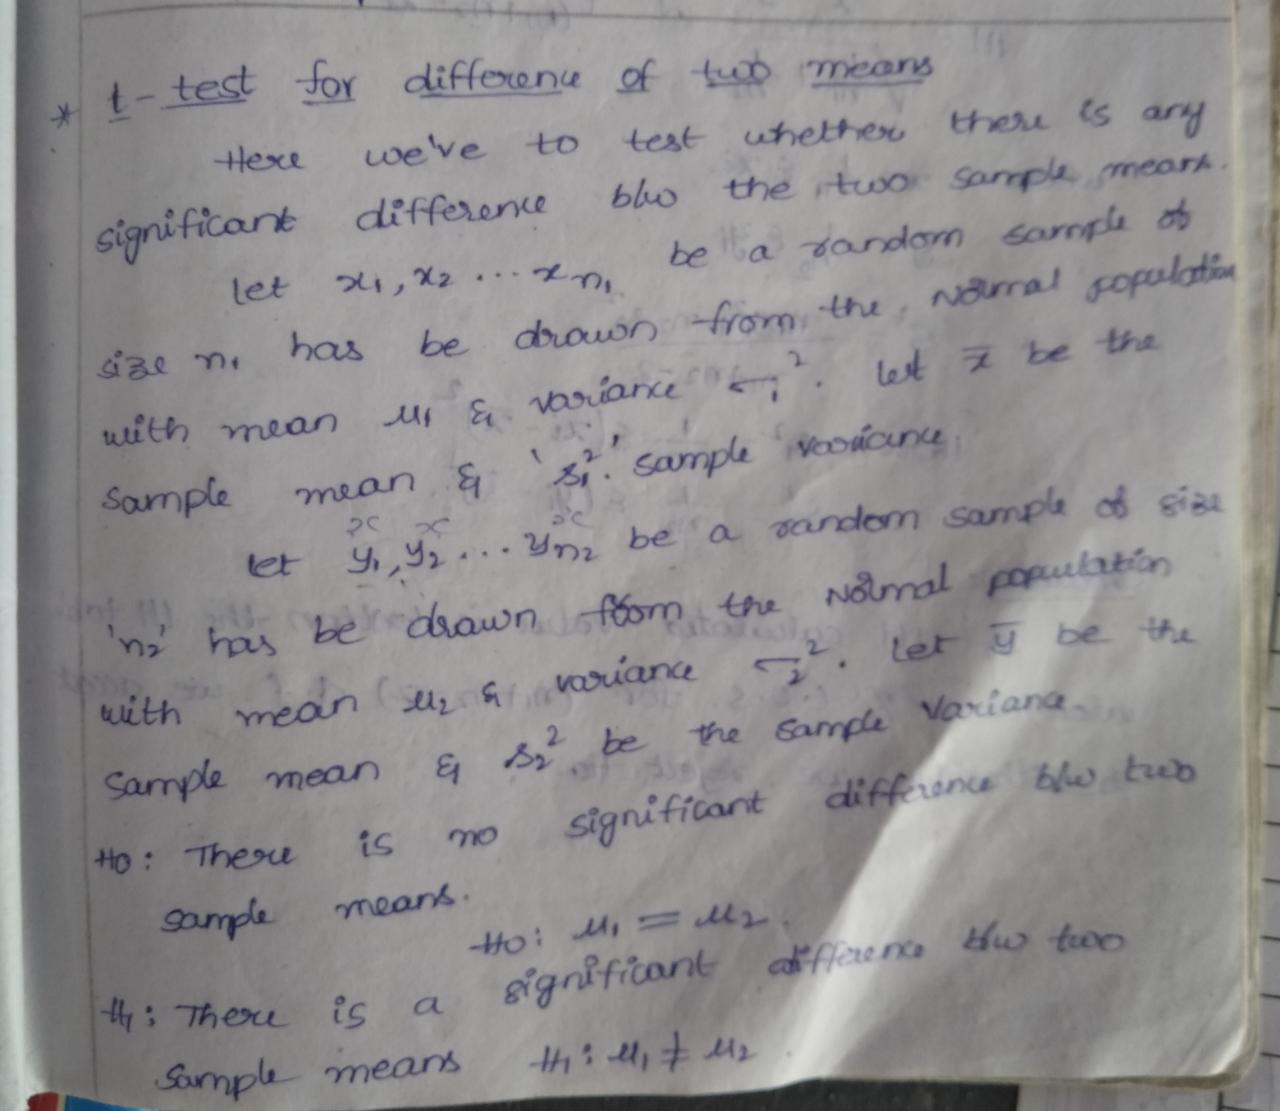 * t-test for difference of two means
Here we've to test whether there is any
significant difference b/w the two sample means.
let x₁, x₂ ... xn₁ be a random sample of
size n₁ has be drawn from the Normal population
with mean μ₁ & variance σ₁². let x̄ be the
sample mean & 's₁²' sample variance.
let y₁, y₂ ... yn₂ be a random sample of size
'n₂' has be drawn from the Normal population
with mean μ₂ & variance σ₂². Let ȳ be the
sample mean & s₂² be the sample variance.
H0: There is no significant difference b/w two
sample means.
H0: μ₁ = μ₂.
H₁: There is a significant difference b/w two
sample means H₁: μ₁ ≠ μ₂.